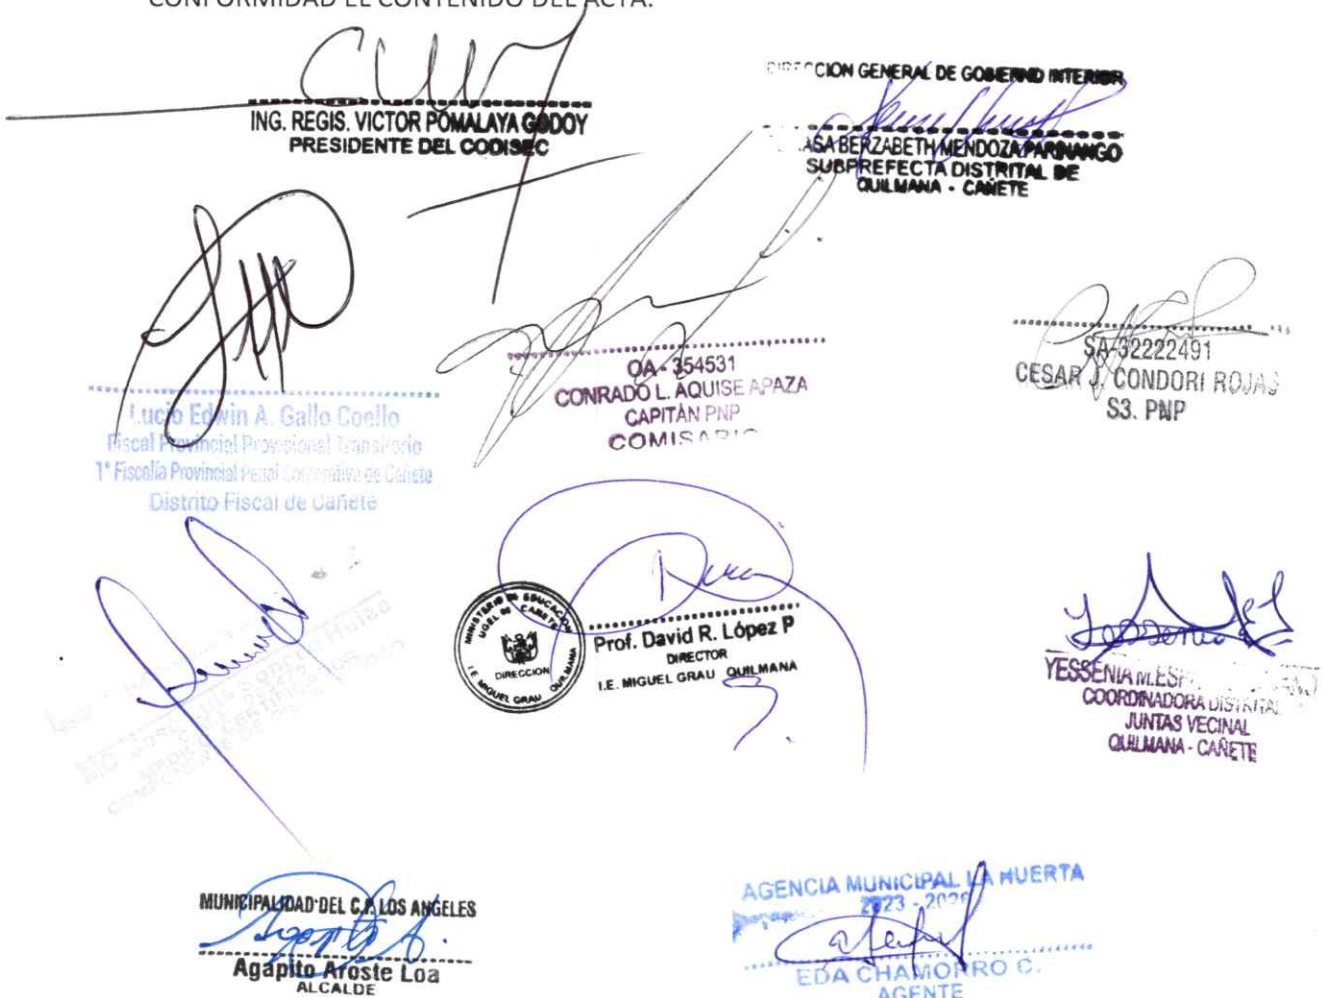 CONFORMIDAD EL CONTENIDO DEL ACTA.
ING. REGIS. VICTOR POMALAYA GODOY
PRESIDENTE DEL CODISEC
DIRECCION GENERAL DE GOBIERNO INTERIOR
BERZABETH MENDOZA PARINANGO
SUBPREFECTA DISTRITAL DE
QUILMANA - CAÑETE
Lucio Edwin A. Gallo Coello
Fiscal Provincial Provisional Transitorio
1° Fiscalía Provincial Penal Corporativa de Cañete
Distrito Fiscal de Cañete
OA - 354531
CONRADO L. AQUISE APAZA
CAPITÁN PNP
COMISARIO
SA-32222491
CESAR J. CONDORI ROJAS
S3. PNP
MINISTERIO DE EDUCACION
UGEL 08 CAÑETE
DIRECCION
I.E. MIGUEL GRAU QUILMANA
Prof. David R. López P
DIRECTOR
I.E. MIGUEL GRAU QUILMANA
Yessenia
YESSENIA M.
COORDINADORA DISTRITAL
JUNTAS VECINAL
QUILMANA - CAÑETE
MUNICIPALIDAD DEL C.P. LOS ANGELES
Agapito A.
Agapito Aroste Loa
ALCALDE
AGENCIA MUNICIPAL LA HUERTA
2023 - 2026
EDA CHAMORRO C.
AGENTE